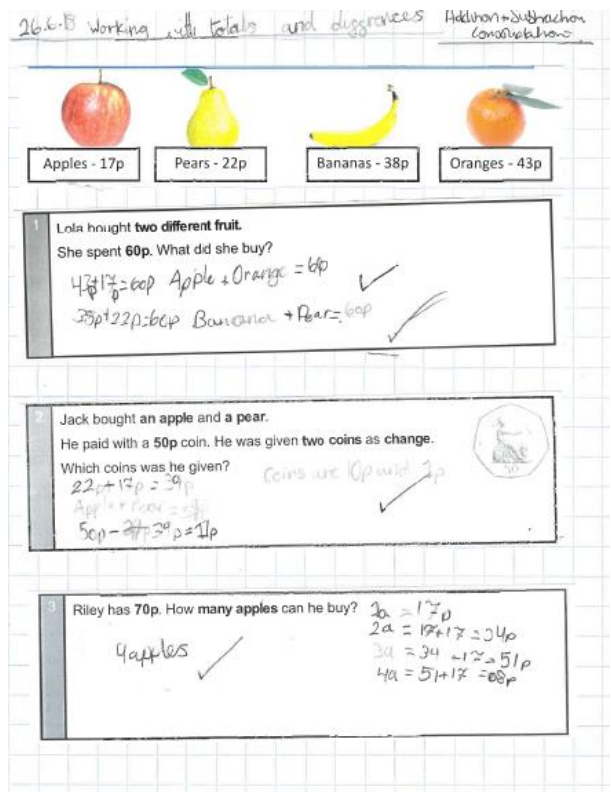 26.6.18 Working with totals and diggrences
Addition + Subtraction
Apples - 17p
Pears - 22p
Bananas - 38p
Oranges - 43p
1
Lola bought two different fruit.
She spent 60p. What did she buy?
43p+17p=60p Apple + Orange = 60p
38p+22p=60p Banana + Pear= 60p
2
Jack bought an apple and a pear.
He paid with a 50p coin. He was given two coins as change.
Which coins was he given?
Coins are 10p and 1p
22p+17p=39p
Apple + Pear =
50p- 39p=11p
50
3
Riley has 70p. How many apples can he buy?
4apples
= 17p
2a = 17+17=34p
3a = 34 17=51p
4a = 51+17 =68p